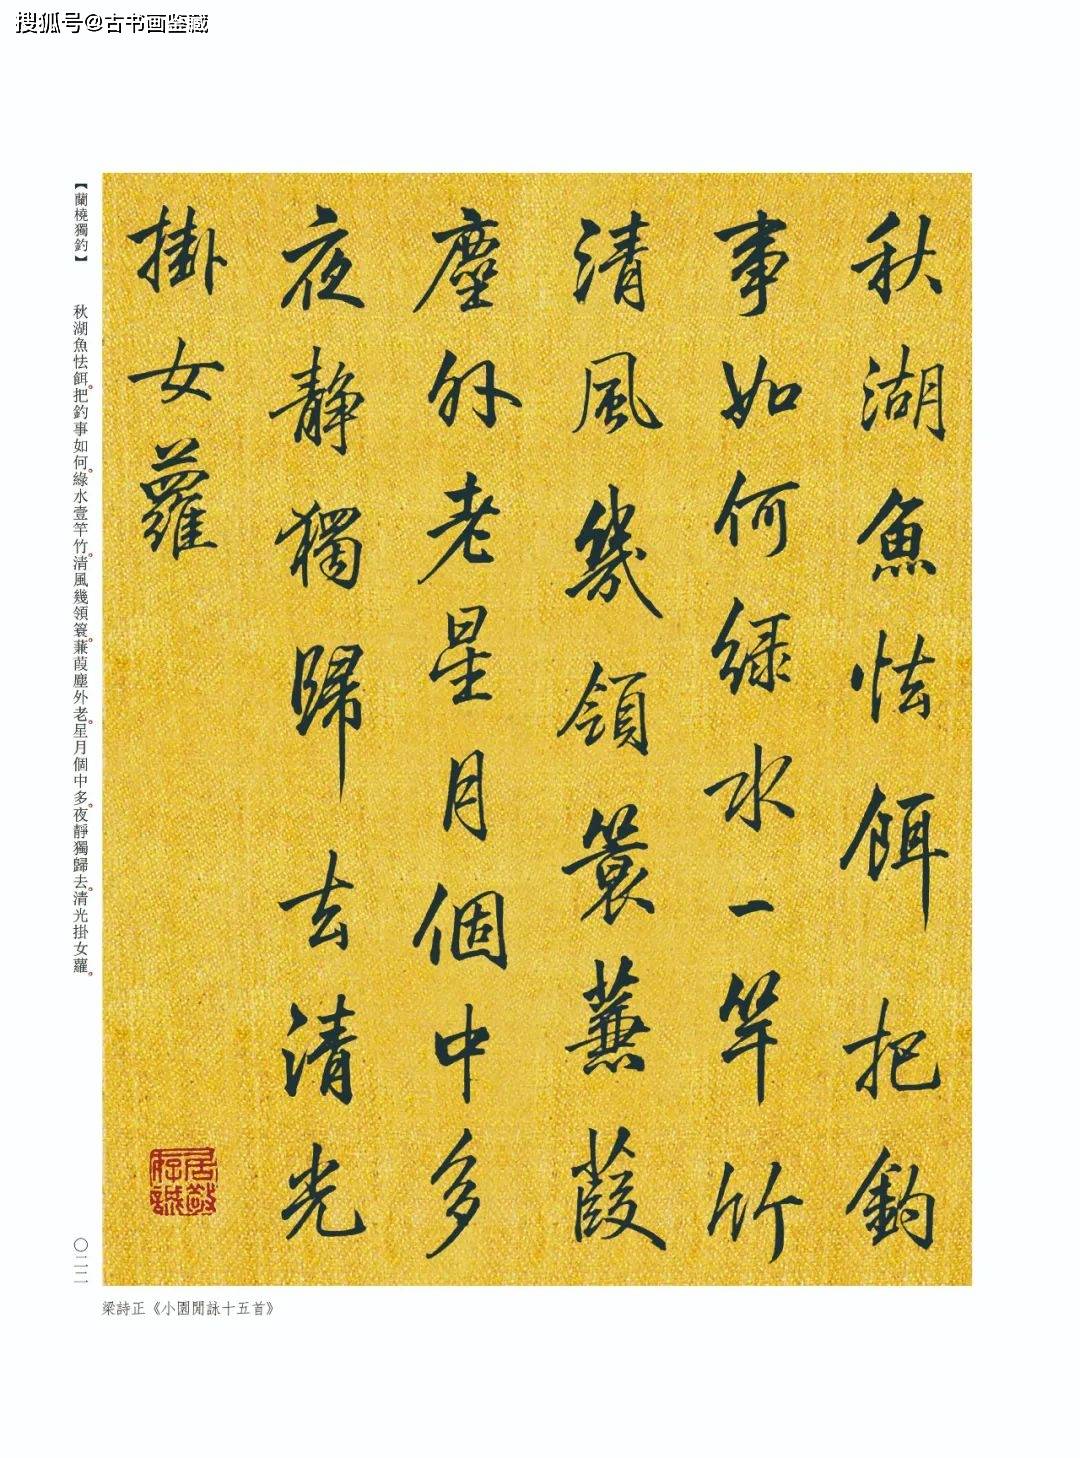 搜狐号@古书画鉴藏
秋湖魚怯餌把釣
事如何緑水一竿竹
清風幾領簑蒹葭
塵外老星月個中多
夜静獨歸去清光
掛女蘿
居敬存誠
【蘭橈獨釣】 秋湖魚怯餌。把釣事如何。綠水壹竿竹。清風幾領簑。蒹葭塵外老。星月個中多。夜靜獨歸去。清光掛女蘿。
〇二二
梁詩正《小園閒詠十五首》